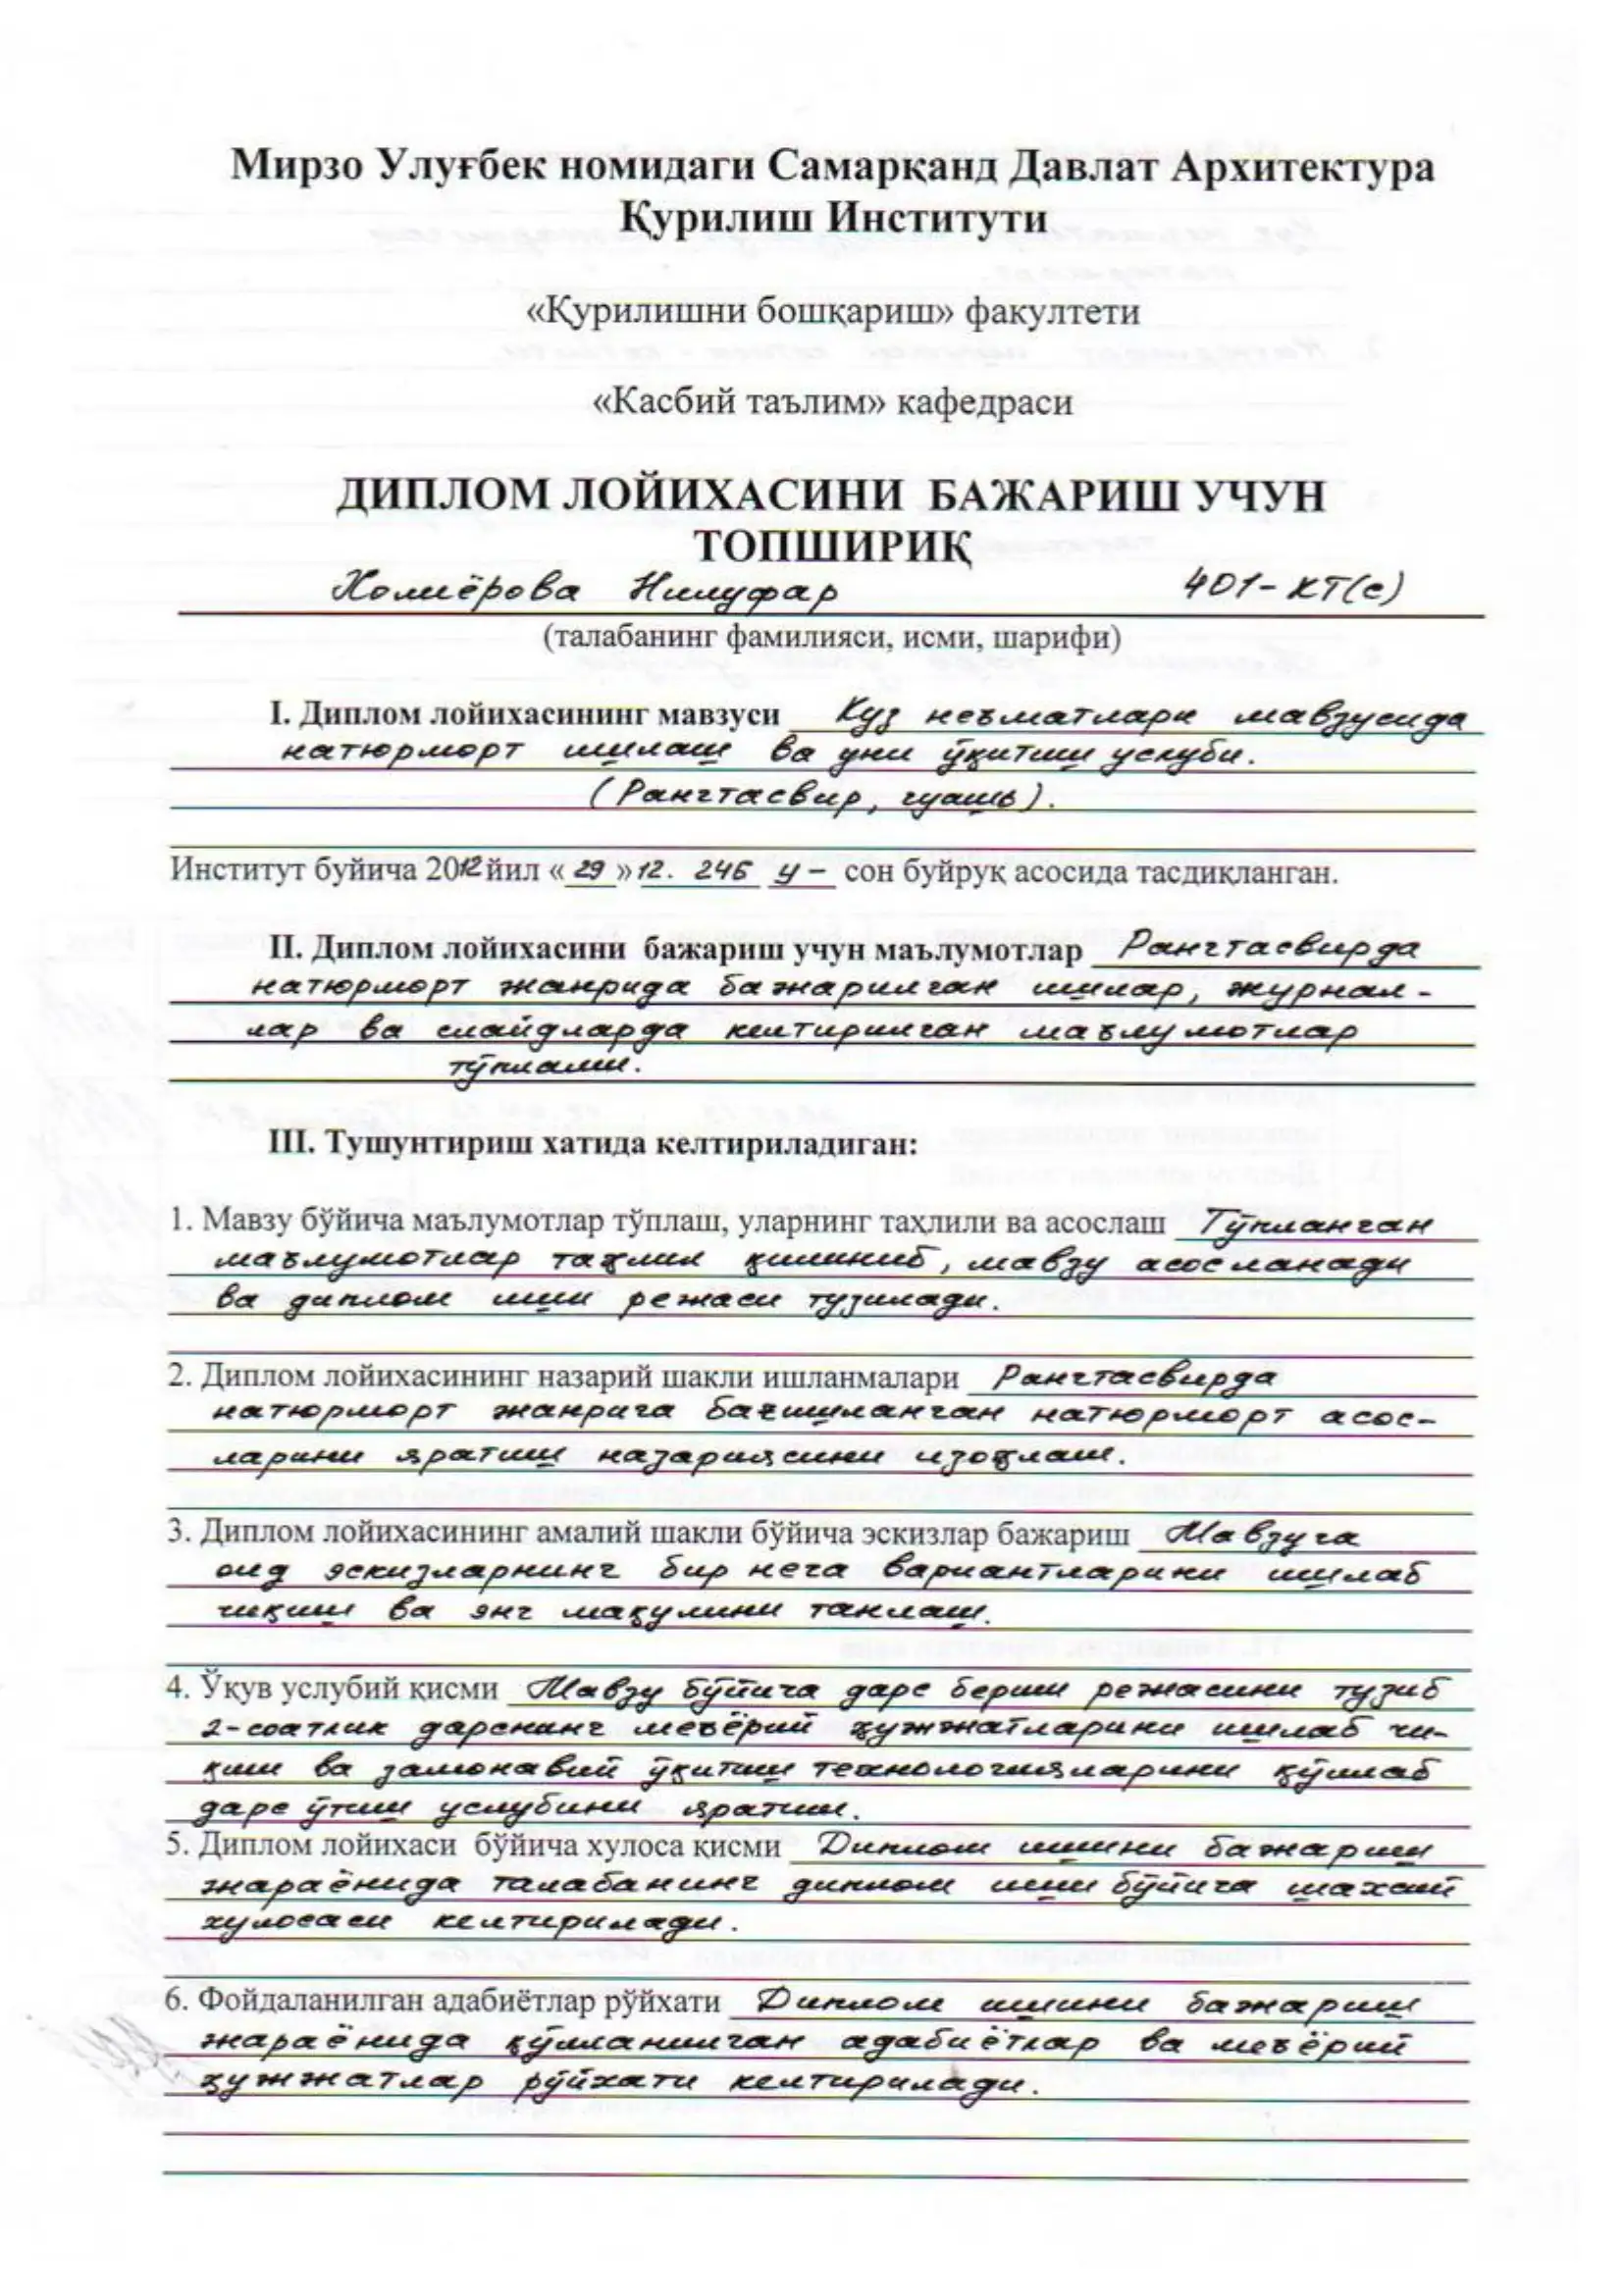 Мирзо Улуғбек номидаги Самарқанд Давлат Архитектура
Қурилиш Институти
«Қурилишни бошқариш» факултети
«Касбий таълим» кафедраси
ДИПЛОМ ЛОЙИХАСИНИ БАЖАРИШ УЧУН
ТОПШИРИҚ
Холиёрова Нилуфар 401-КТ(с)
(талабанинг фамилияси, исми, шарифи)
I. Диплом лойихасининг мавзуси Куз неъматлари мавзусида
натюрморт ишлаш ва уни ўқитиш услуби.
(Рангтасвир, гуашь).
Институт буйича 2012 йил «29» 12. 246 у- сон буйруқ асосида тасдиқланган.
II. Диплом лойихасини бажариш учун маълумотлар Рангтасвирда
натюрморт жанрида бажарилган ишлар, журнал-
лар ва слайдларда келтирилган маълумотлар
тўплами.
III. Тушунтириш хатида келтириладиган:
1. Мавзу бўйича маълумотлар тўплаш, уларнинг таҳлили ва асослаш Тўпланган
маълумотлар таҳлил қилиниб, мавзу асосланади
ва диплом иши режаси тузилади.
2. Диплом лойихасининг назарий шакли ишланмалари Рангтасвирда
натюрморт жанрига бағишланган натюрморт асос-
ларини яратиш назариясини изоҳлаш.
3. Диплом лойихасининг амалий шакли бўйича эскизлар бажариш Мавзуга
оид эскизларнинг бир нега вариантларини ишлаб
чиқиш ва энг мақулини танлаш.
4. Ўқув услубий қисми Мавзу бўйича дарс бериш режасини тузиб
2-соатлик дарснинг меъёрий ҳужжатларини ишлаб чи-
қиш ва замонавий ўқитиш технологияларини қўллаб
дарс ўтиш услубини яратиш.
5. Диплом лойихаси бўйича хулоса қисми Диплом ишини бажариш
жараёнида талабанинг диплом иши бўйича шахсий
хулосаси келтирилади.
6. Фойдаланилган адабиётлар рўйхати Диплом ишини бажариш
жараёнида қўлланилган адабиётлар ва меъёрий
ҳужжатлар рўйхати келтирилади.